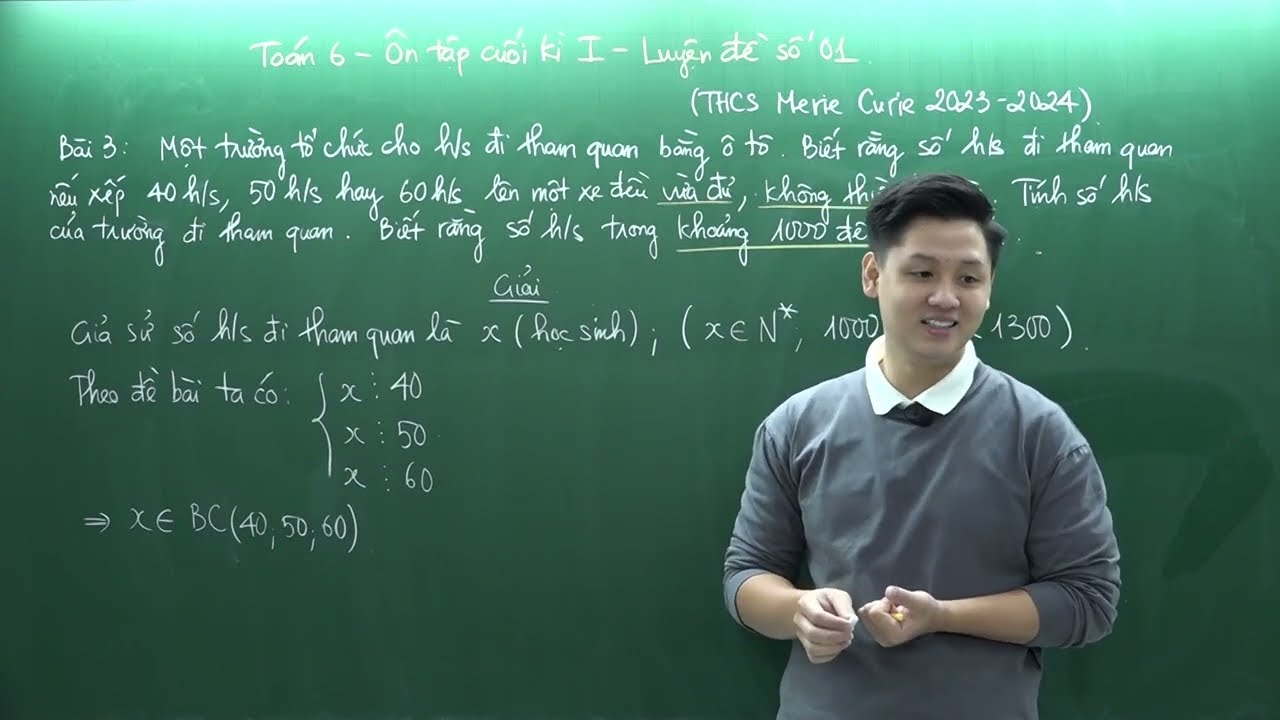 Toán 6 – Ôn tập cuối kì I – Luyện đề số 01.
(THCS Merie Curie 2023-2024)
Bài 3: Một trường tổ chức cho h/s đi tham quan bằng ô tô. Biết rằng số h/s đi tham quan
nếu xếp 40 h/s, 50 h/s hay 60 h/s lên một xe đều vừa đủ, không . Tính số h/s
của trường đi tham quan. Biết rằng số h/s trong khoảng 1000 .
Giải
Giả sử số h/s đi tham quan là x (học sinh); (x ∈ N*; 1000 1300).
Theo đề bài ta có: { x ⋮ 40
x ⋮ 50
x ⋮ 60
⇒ x ∈ BC(40; 50; 60)